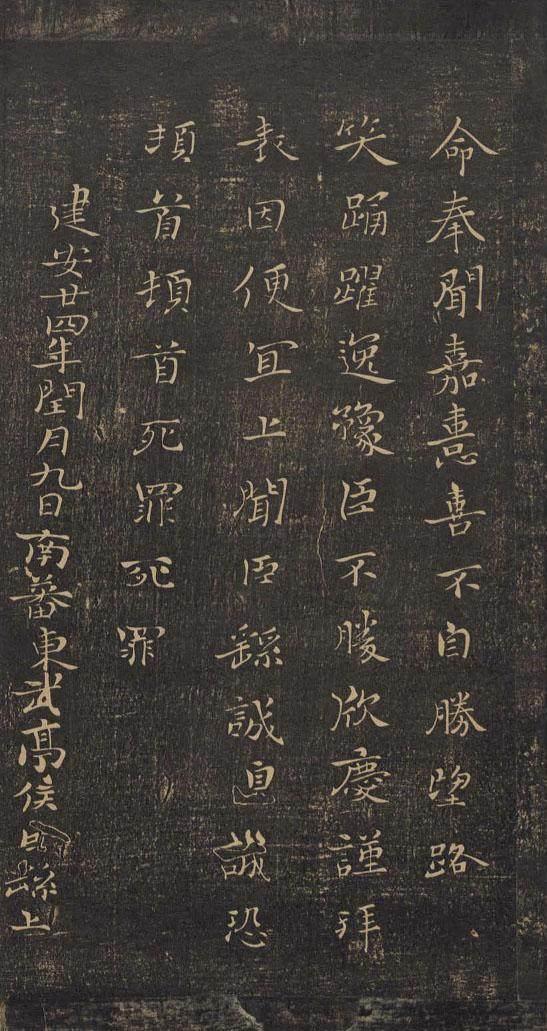 命奉聞嘉憙喜不自勝望路
笑踊躍逸豫臣不勝欣慶謹拜
表因便宜上聞臣繇誠皇誠恐
頓首頓首死罪死罪
建安廿四年閏月九日南蕃東武亭侯臣繇上